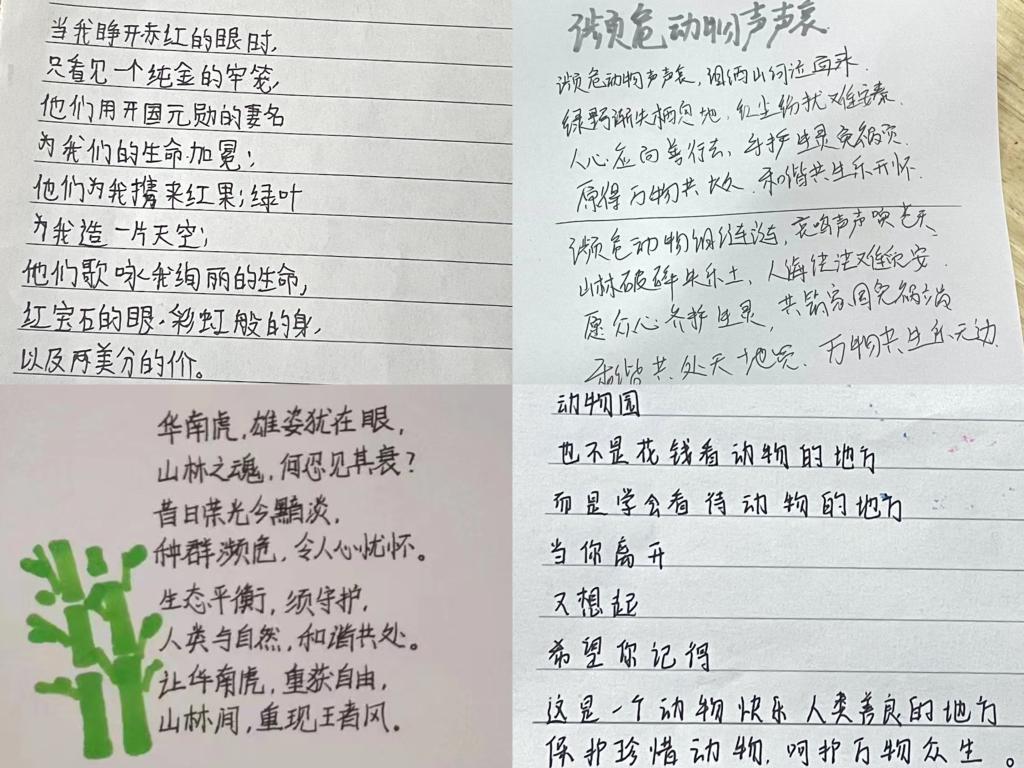 当我睁开赤红的眼时,
只看见一个纯金的牢笼,
他们用开国元勋的妻名
为我们的生命加冕;
他们为我携来红果;绿叶
为我造一片天空;
他们歌咏我绚丽的生命,
红宝石的眼·彩虹般的身,
以及两美分的价。
濒危动物声声哀
濒危动物声声哀,
绿野渐失栖息地,红尘纷扰难
人心应向善行去,手护生灵免祸灾.
愿得万物共 和谐共生乐开怀.
濒危动物 哀鸣声声唤苍天
山林破碎失乐土,人海 难 安.
愿众心齐护生灵,共筑家园免祸
和谐共处天地宽.万物共生乐无边.
华南虎,雄姿犹在眼,
山林之魂,何忍见其衰?
昔日荣光今黯淡,
种群濒危,令人心忧怀。
生态平衡,须守护,
人类与自然,和谐共处。
让华南虎,重获自由,
山林间,重现王者风。
动物园
也不是花钱看动物的地方
而是学会看待动物的地方
当你离开
又想起
希望你记得
这是一个动物快乐人类善良的地方
保护珍惜动物,呵护万物众生。